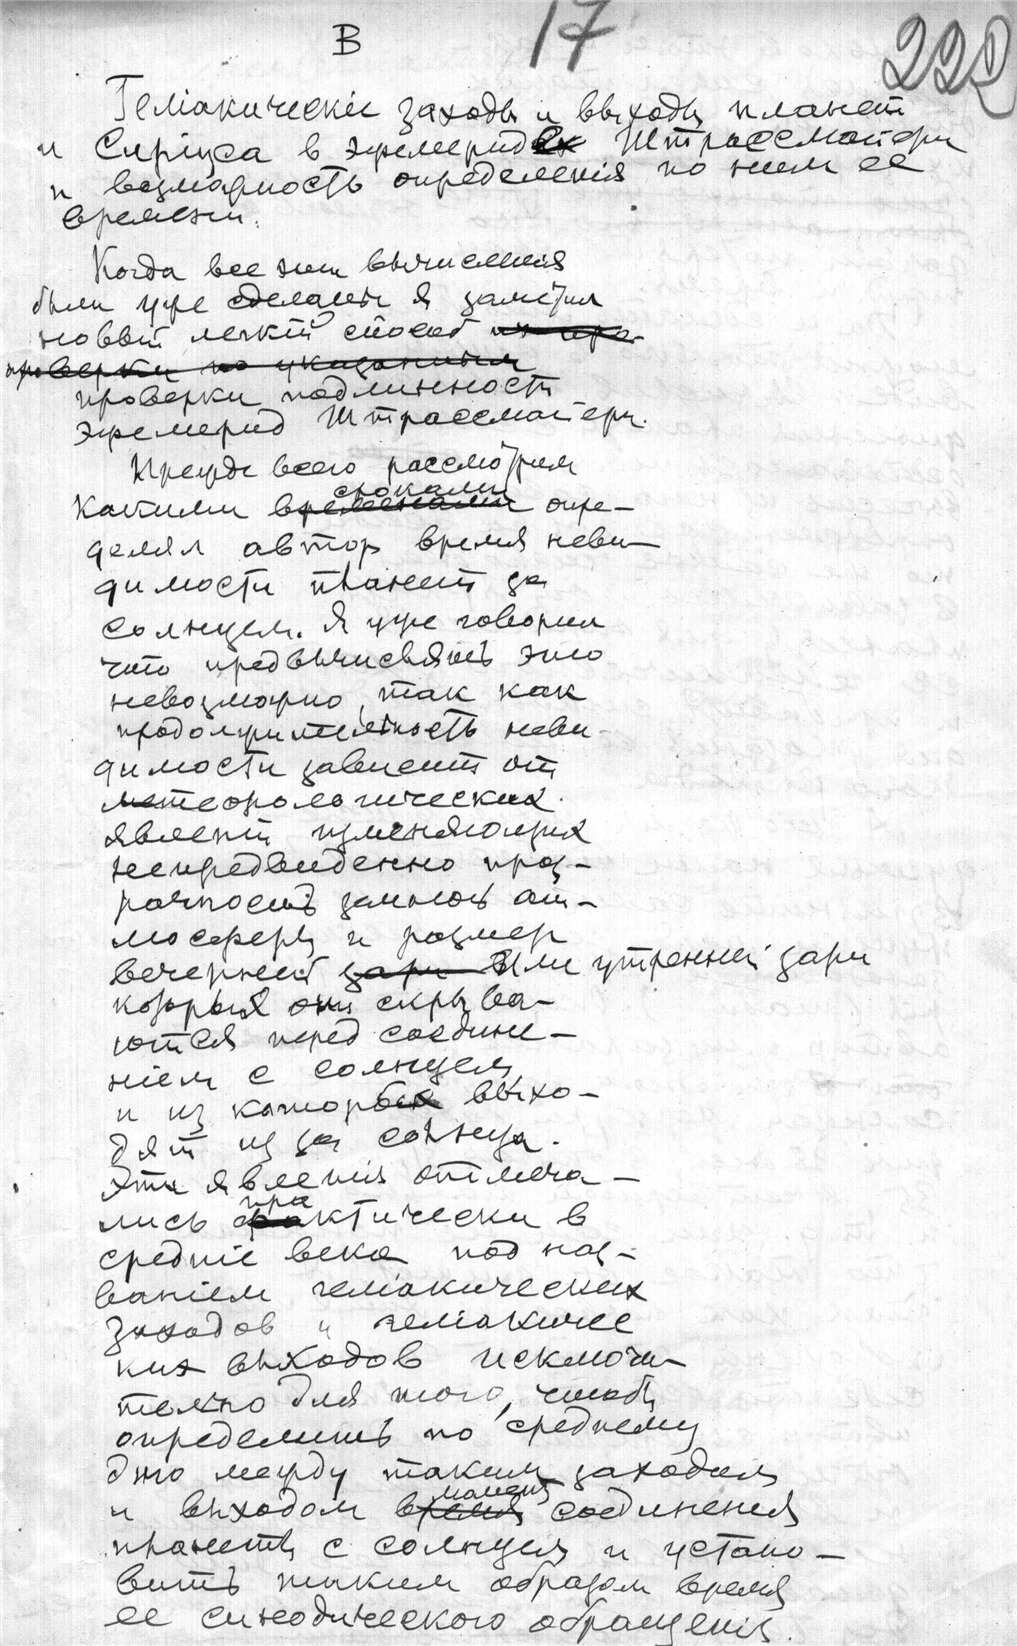 В 17 220
Геліакическіе заходы и выходы планет
и Сиріуса в эфемеридах Штрассмайера
и возможность определенія по ним ее
времени.
Когда все эти вычисленія
были уже сделаны я заметил
новый легкій способ
проверки по указанным
проверки подлинности
эфемерид Штрассмайера.
Прежде всего рассмотрим
сроками
какими временами опре-
делял автор время неви-
димости планет за
солнцем. Я уже говорил
что предвычислять это
невозможно, так как
продолжительность неви-
димости зависит от
метеорологических
явленій изменяющих
непредвиденно проз-
рачность земной ат-
мосферы и размер
вечерней зари или утренней зари
которыя они скрыва-
ются перед соедине-
ніем с солнцем
и из которых выхо-
дят из за солнца.
Эти явленія отмеча-
пра
лись фактически в
средніе века под наз-
ваніем геліакических
заходов и геліакичес
ких выходов исключи-
тельно для того, чтобы
определить по среднему
дню между таким заходом
момент
и выходом время соединения
планеты с солнцем и устано-
вить таким образом время
ее синодического обращенія.